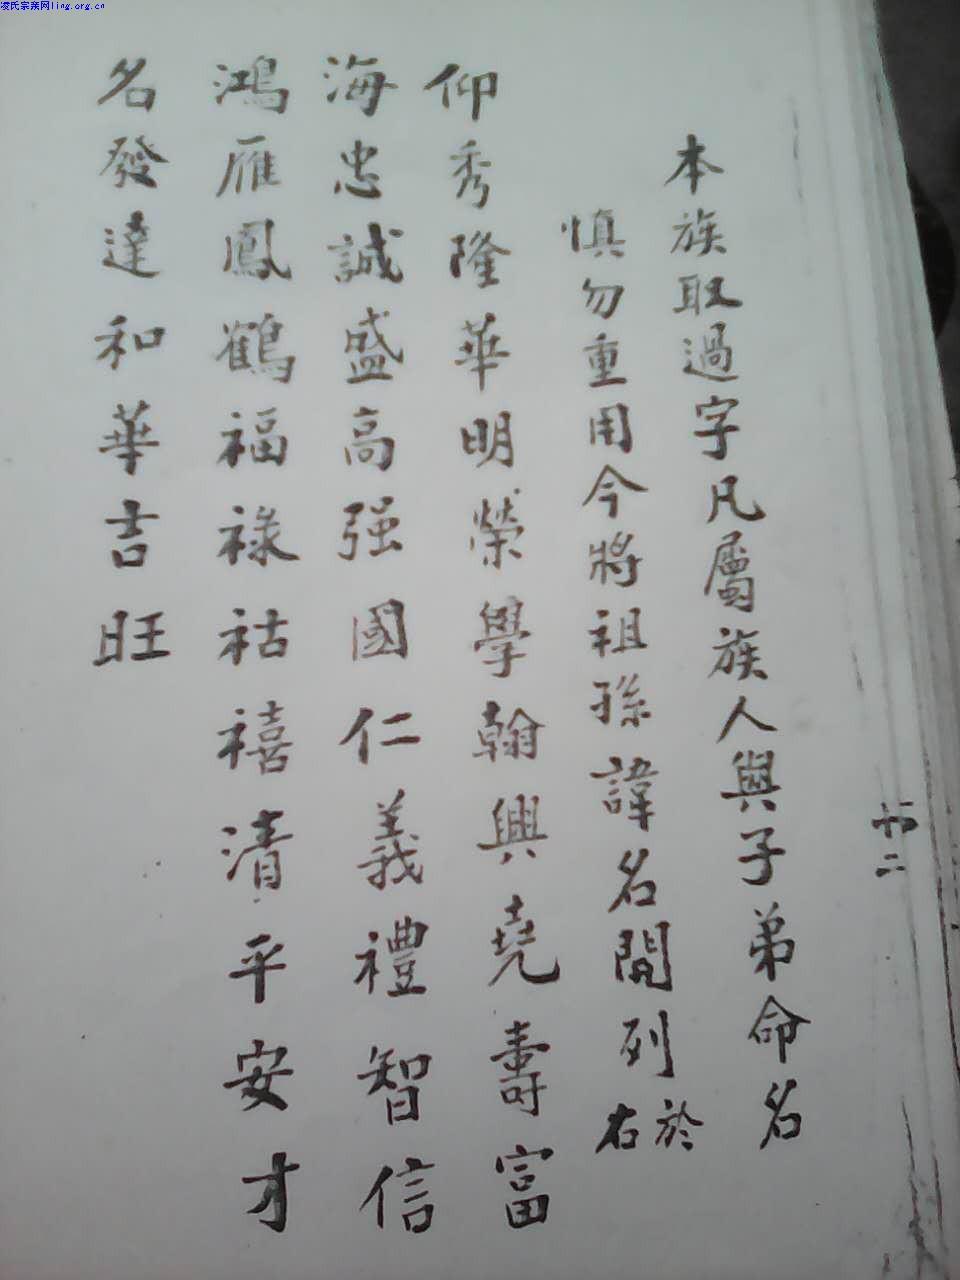 凌氏宗亲网ling.org.cn
本族取過字凡屬族人與子弟命名
慎勿重用今將祖孫諱名開列於右
仰秀隆華明榮學翰興堯壽富
海忠誠盛高强國仁義禮智信
鴻雁鳳鶴福祿祜禧清平安才
名發達和華吉旺